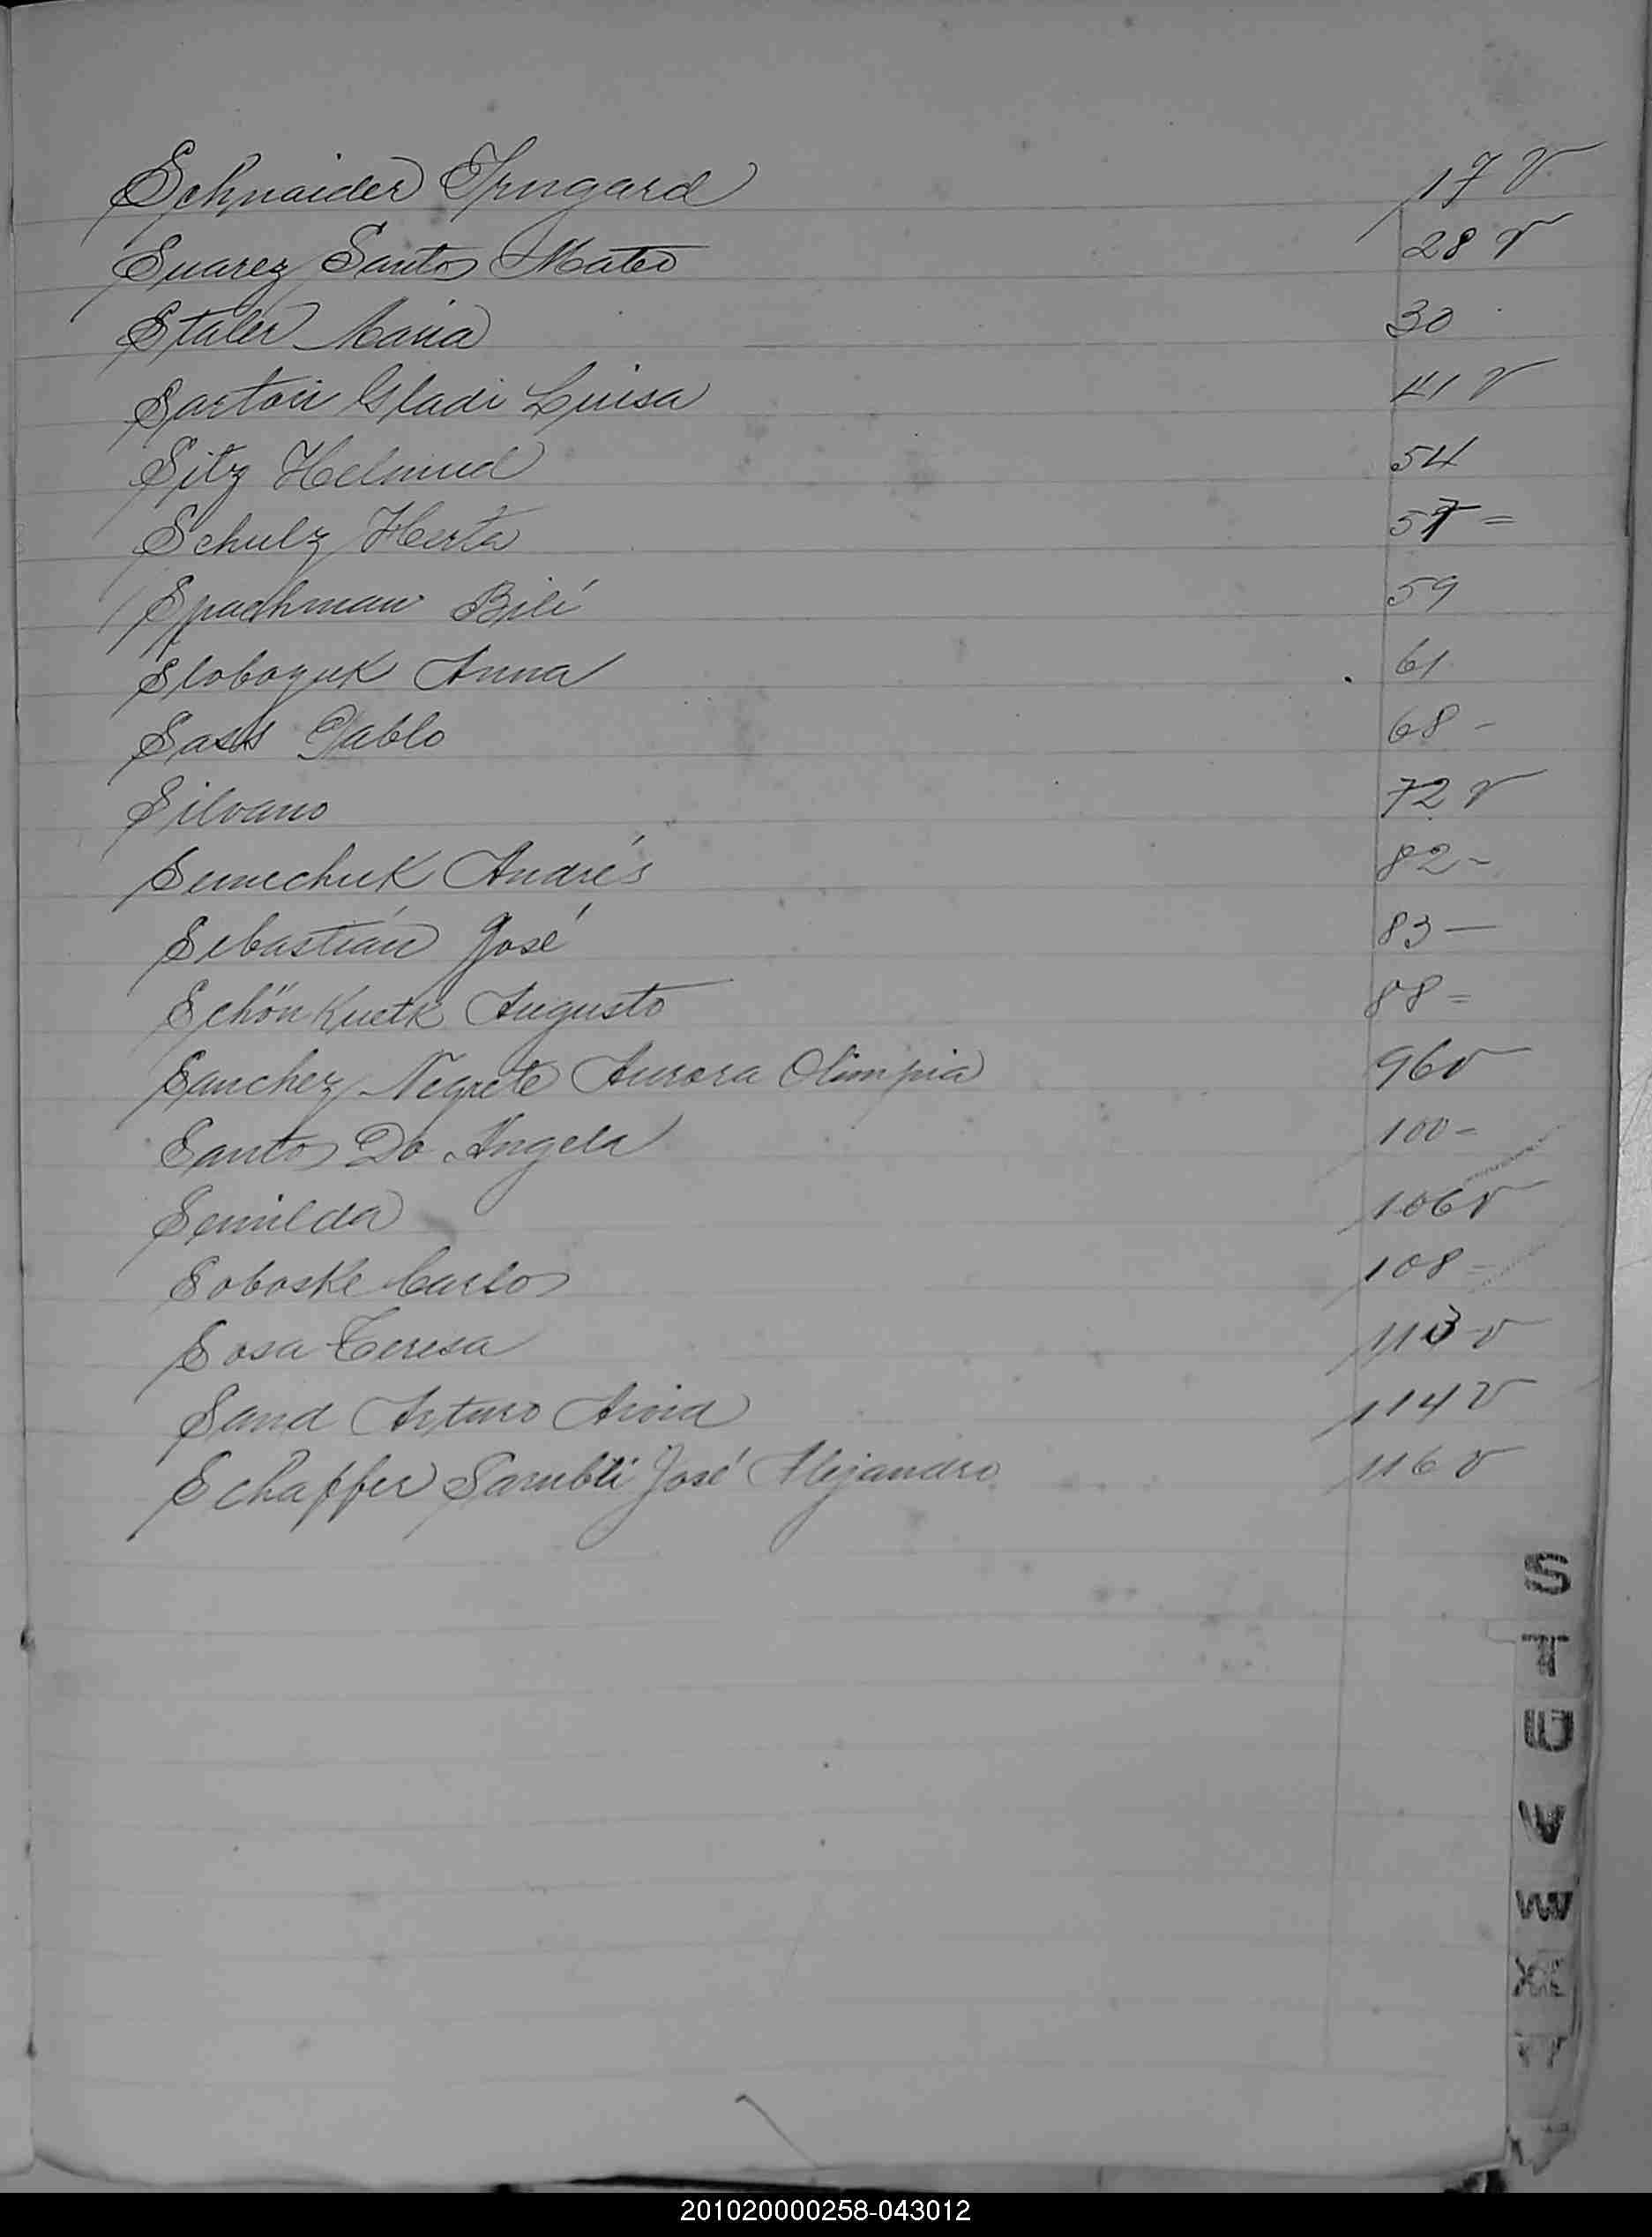 Schnaider Irmgard 17 v
Suarez Santos Mateo 28 v
Staler Maria 30
Sartori Gladi Luisa 41 v
Sitz Helmud 54
Schulz Herta 57 =
Spachman Bili 59
Slobozuk Anna 61
Sass Pablo 68 -
Silvano 72 v
Semechuk Andrés 82 -
Sebastián José 83 —
Schön Kuetk Augusto 88 =
Sanchez Negrete Aurora Olimpia 96 v
Santos Do Angela 100 =
Semilda 106 v
Soboske Carlos 108 =
Sosa Teresa 113 v
Sand Arturo 114 v
Schaffer José Alejandro 116 v
S
T
U
V
W
X
Y
201020000258-043012